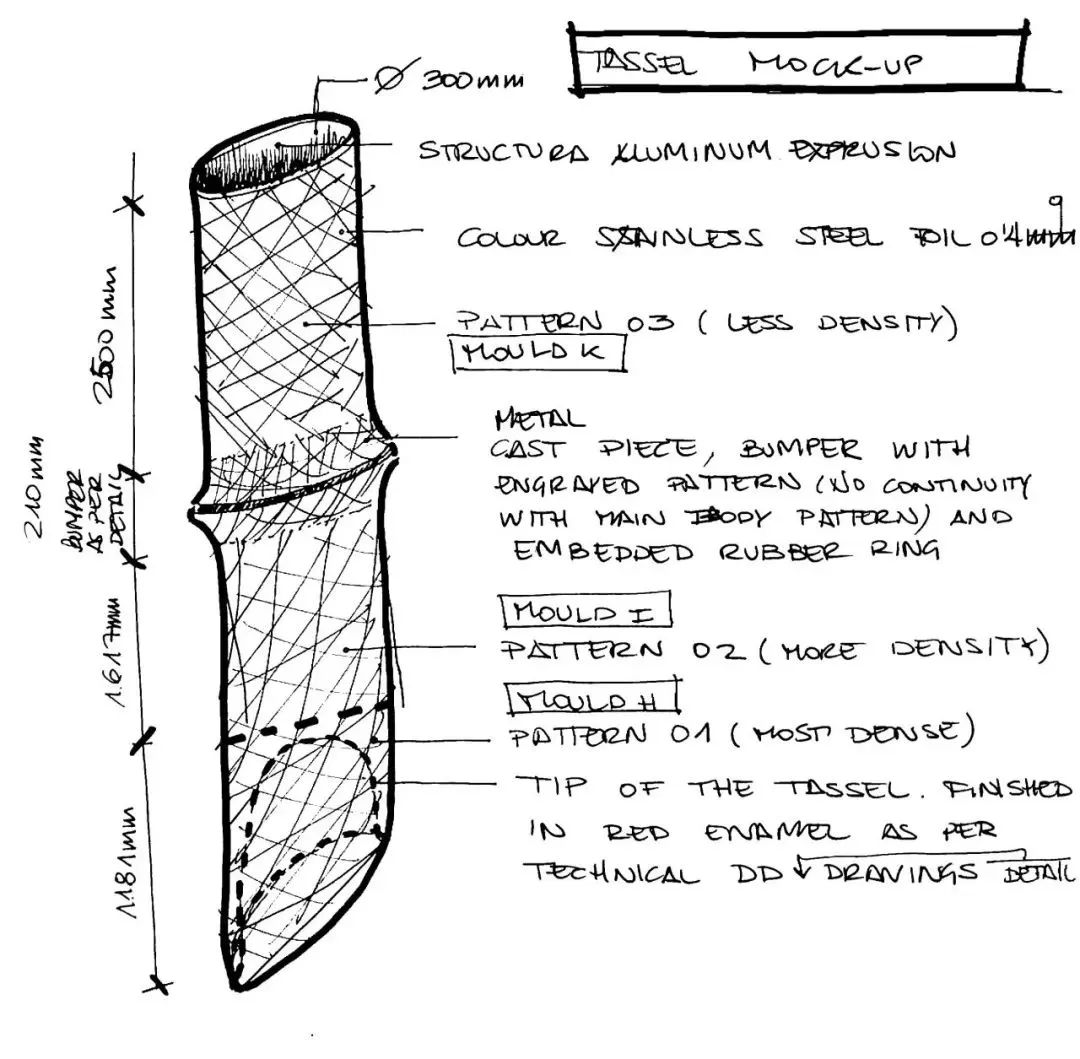 TASSEL MOCK-UP
Ø 300mm
STRUCTURA ALUMINUM EXPRUSION
COLOUR STAINLESS STEEL FOIL 0'4mm
PATTERN 03 (LESS DENSITY)
MOULD K
METAL
CAST PIECE, BUMPER WITH
ENGRAVED PATTERN (NO CONTINUITY
WITH MAIN BODY PATTERN) AND
EMBEDDED RUBBER RING
MOULD I
PATTERN 02 (MORE DENSITY)
MOULD H
PATTERN 01 (MOST DENSE)
TIP OF THE TASSEL. FINISHED
IN RED ENAMEL AS PER
TECHNICAL DD DRAWINGS DETAIL
2500mm
210mm
BUMPER
AS PER
DETAIL
1.617mm
1.181mm